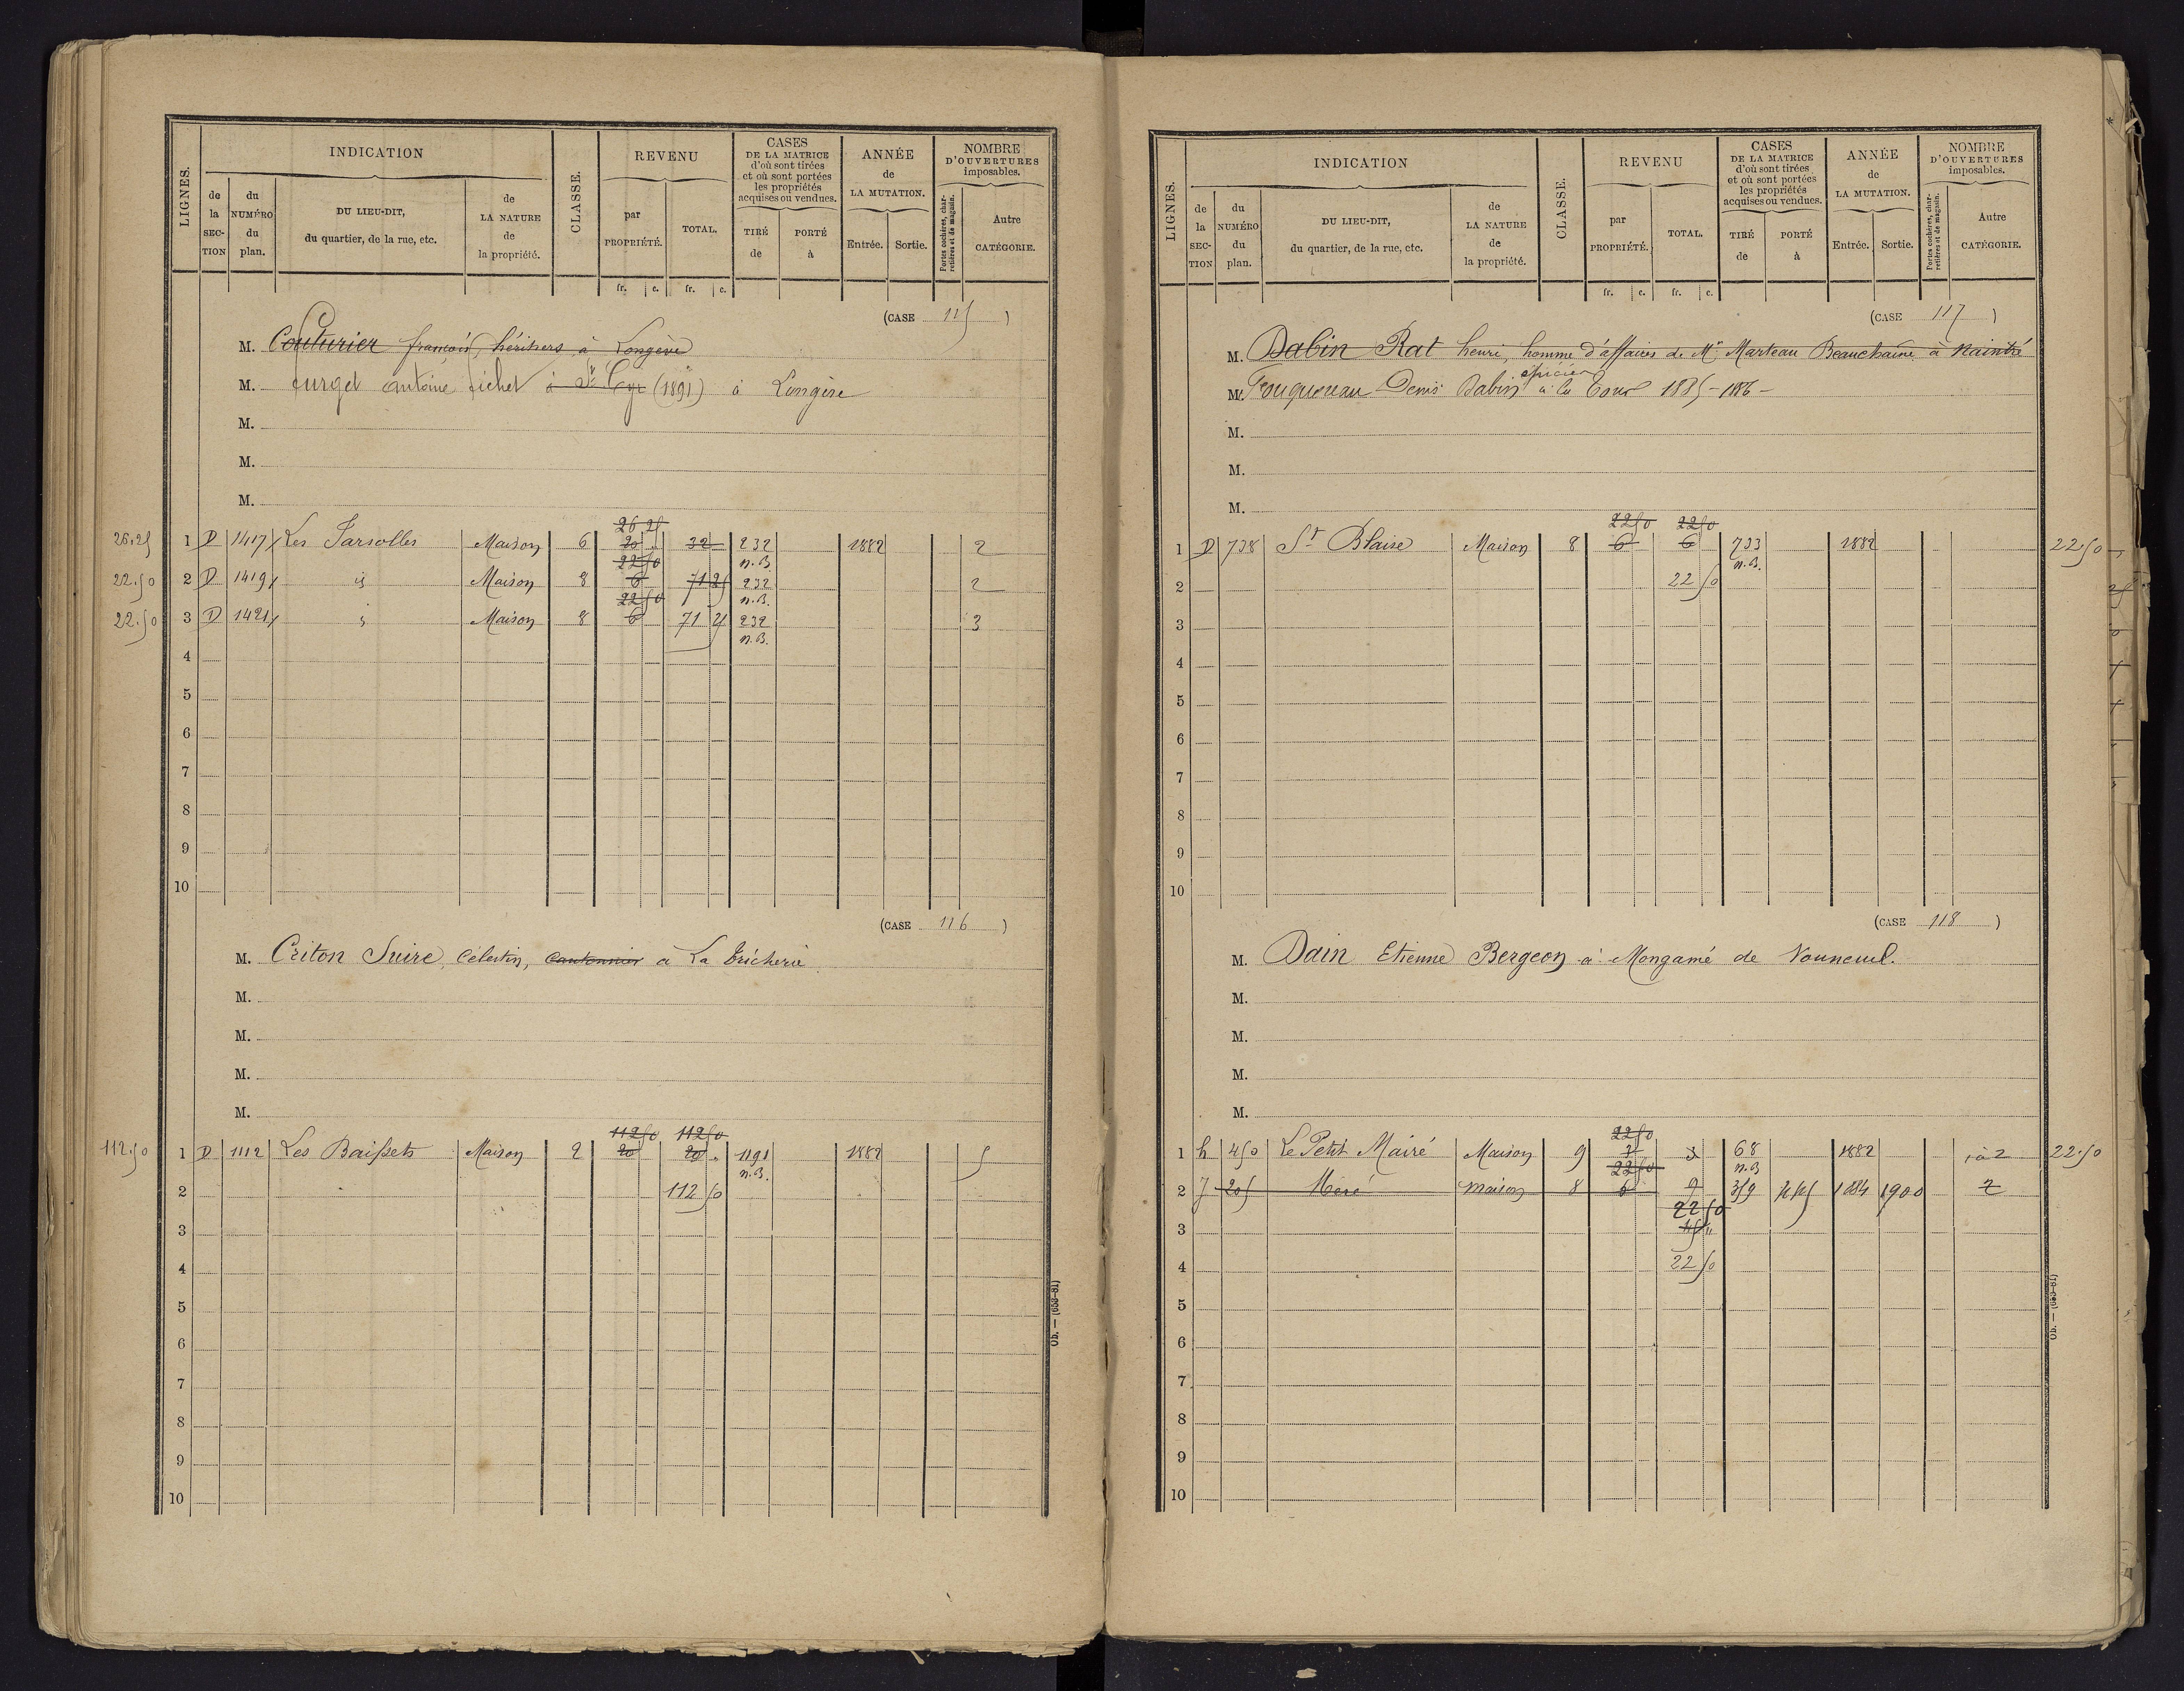 LIGNES.
INDICATION
de la SECTION
du NUMÉRO du plan.
DU LIEU-DIT, du quartier, de la rue, etc.
de LA NATURE de la propriété.
CLASSE.
REVENU
par PROPRIÉTÉ.
TOTAL.
fr. c. fr. c.
CASES DE LA MATRICE d'où sont tirées et où sont portées les propriétés acquises ou vendues.
TIRÉ de
PORTÉ à
ANNÉE de LA MUTATION.
Entrée. Sortie.
NOMBRE D'OUVERTURES imposables.
Portes cochères, charretières et de magasin.
Autre CATÉGORIE.
(CASE 115)
M. Couturier françois, héritiers à Longève
M. furget antoine fichet à St Cyr (1891) à Longève
M.
M.
M.
26 25
26.25 1 D 1417 Les Jarsolles Maison 6 20 32 232 1882 2
22 50 n.B.
22.50 2 D 1419 id Maison 8 6 71 25 232 2
22 50 n.B.
22.50 3 D 1421 id Maison 8 6 71 25 232 3
n.B.
4
5
6
7
8
9
10
(CASE 116)
M. Criton Suire, Célestin, Cantonnier à La Tricherie
M.
M.
M.
M.
112 50 112 50
112.50 1 D 1112 Les Baissets Maison 2 20 20 1191 1882 5
n.B.
2 112 50
3
4
5
6
7
8
9
10
Ob. — (653-81)
LIGNES.
INDICATION
de la SECTION
du NUMÉRO du plan.
DU LIEU-DIT, du quartier, de la rue, etc.
de LA NATURE de la propriété.
CLASSE.
REVENU
par PROPRIÉTÉ.
TOTAL.
fr. c. fr. c.
CASES DE LA MATRICE d'où sont tirées et où sont portées les propriétés acquises ou vendues.
TIRÉ de
PORTÉ à
ANNÉE de LA MUTATION.
Entrée. Sortie.
NOMBRE D'OUVERTURES imposables.
Portes cochères, charretières et de magasin.
Autre CATÉGORIE.
(CASE 117)
M. Dabin Rat henri, homme d'affaires de Mr Marteau Beauchaine à Naintré
épicier
M. Fouqueteau Denis Dabin à la Tour 1885-1886-
M.
M.
M.
22 50 22 50
1 D 738 St Blaise Maison 8 6 6 733 1882 22.50
n.B.
2 22 50
3
4
5
6
7
8
9
10
(CASE 118)
M. Dain Etienne Bergeon à Mongamé de Vouneuil.
M.
M.
M.
M.
22 50
1 h 450 Le Petit Mairé Maison 9 3 3 68 1882 1 à 2 22.50
22 50 n.B
2 J 205 Méré maison 8 6 9 359 1884 1900 2
22 50
3 45
4 22 50
5
6
7
8
9
10
Ob. — (653-81)